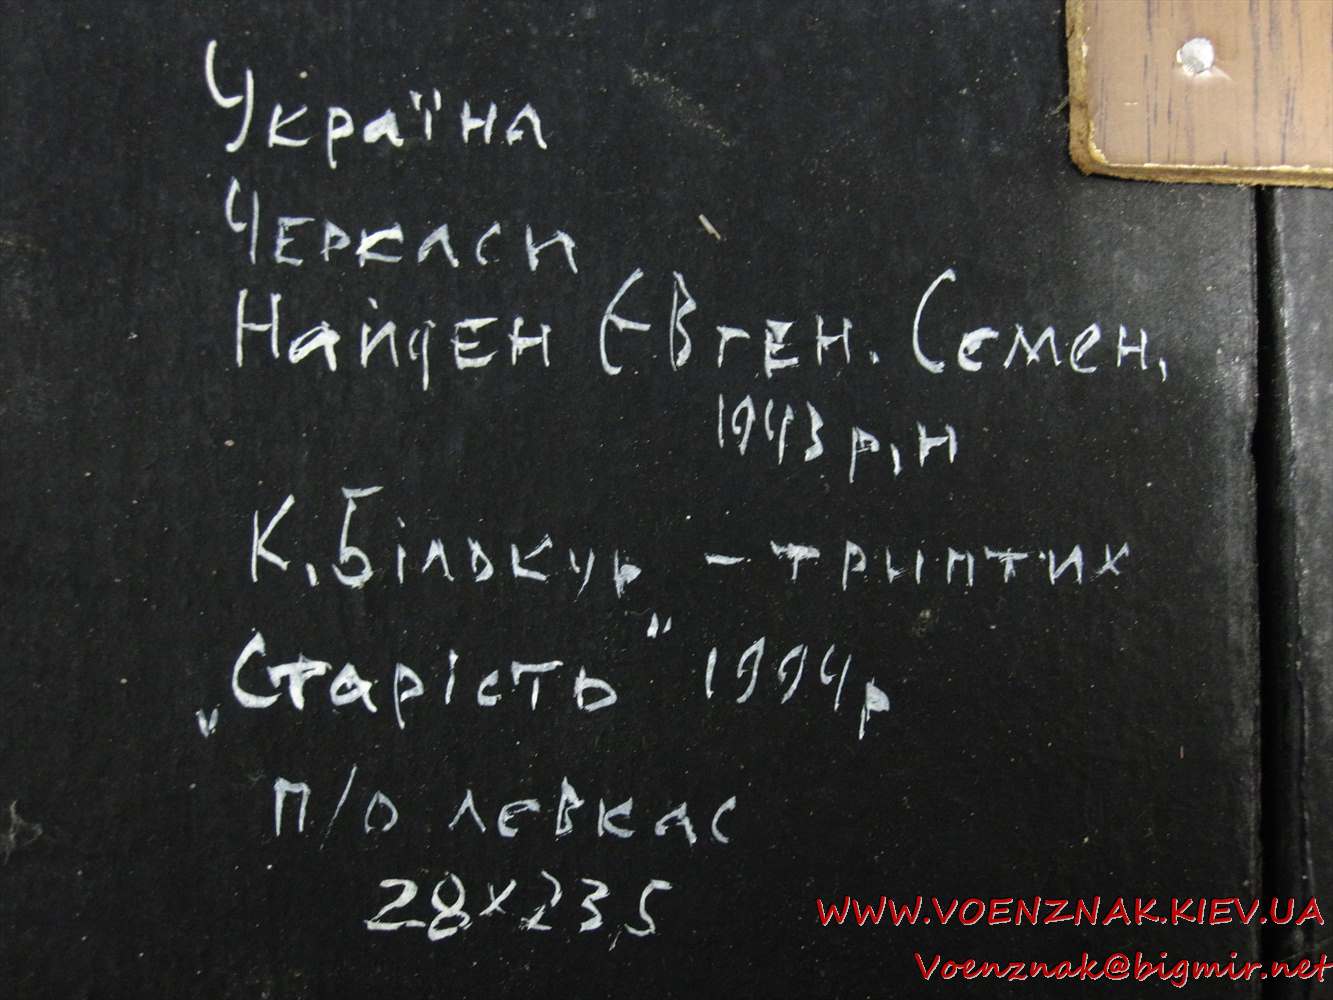 Україна
Черкаси
Найден Євген. Семен.
1943 р.н
К. Білокур - трыптих
„Старість" 1994р
п/о левкас
28×23,5
WWW.VOENZNAK.KIEV.UA
Voenznak@bigmir.net